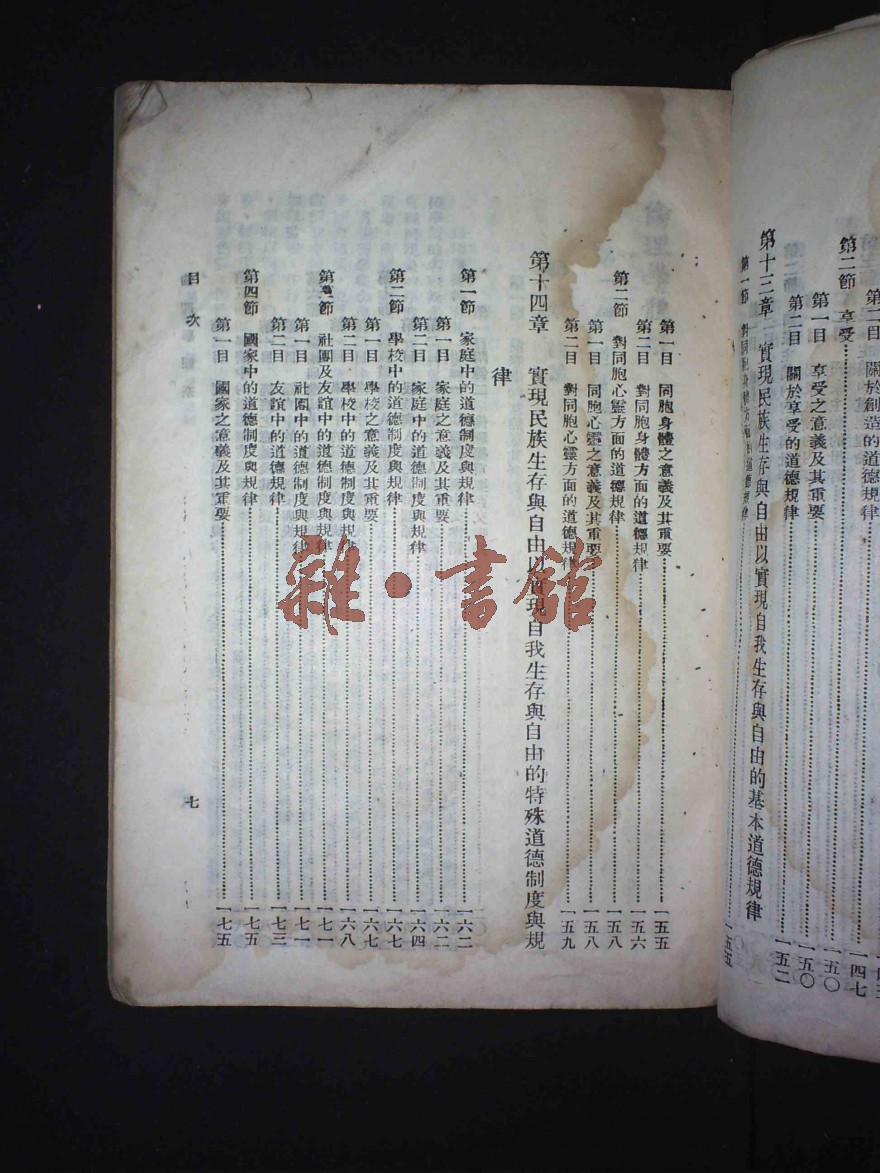 第二目 關於創造的道德規律
第二節 享受 一四七
第一目 享受之意義及其重要 一五〇
第二目 關於享受的道德規律 一五〇
第十三章 實現民族生存與自由以實現自我生存與自由的基本道德規律 一五二
第一節 對同胞身體方面的道德規律 一五五
第一目 同胞身體之意義及其重要 一五五
第二目 對同胞身體方面的道德規律 一五六
第二節 對同胞心靈方面的道德規律 一五八
第一目 同胞心靈之意義及其重要 一五八
第二目 對同胞心靈方面的道德規律 一五九
第十四章 實現民族生存與自由以實現自我生存與自由的特殊道德制度與規
律
第一節 家庭中的道德制度與規律 一六二
第一目 家庭之意義及其重要 一六二
第二目 家庭中的道德制度與規律 一六四
第二節 學校中的道德制度與規律 一六七
第一目 學校之意義及其重要 一六七
第二目 學校中的道德制度與規律 一六八
第三節 社團及友誼中的道德制度與規律 一七一
第一目 社團中的道德制度與規律 一七一
第二目 友誼中的道德規律 一七三
第四節 國家中的道德制度與規律 一七五
第一目 國家之意義及其重要 一七五
目次 七
雜·書館